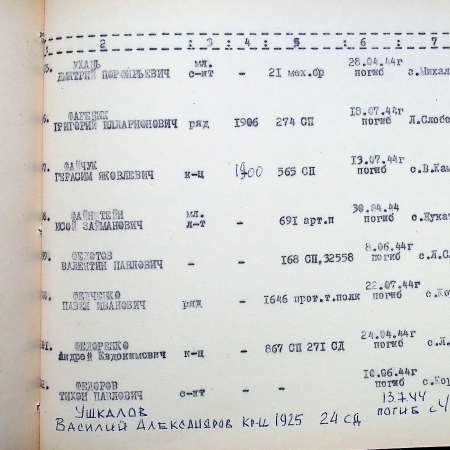 : 2 : 3 : 4 : 5 : 6 : 7
УХАНЬ мл. 28.04.44г
ДМИТРИЙ ПОРФИРЬЕВИЧ с-нт - 21 мех.бр погиб с.Михал
18.07.44г
ГРИГОРИЙ ИЛЛАРИОНОВИЧ ряд 1906 274 СП погиб Л.Слобо
ФАЙЧУК 13.07.44г
ГЕРАСИМ ЯКОВЛЕВИЧ к-ц 1900 565 СП погиб с.В.Кам
ФАЙНШТЕЙН мл. 30.04.44
ИСОЙ ЗАЙМАНОВИЧ л-т - 691 арт.п погиб с.Жукат
ФЕДОТОВ 8.06.44г
ВАЛЕНТИН ПАВЛОВИЧ - - 168 СП,32558 погиб с.Л.С
ФЕДЧЕНКО 22.07.44г
ПАВЕЛ ИВАНОВИЧ ряд - 1646 прот.т.полк погиб с.Кор
ФЕДОРЕНКО 24.04.44г
Андрей Евдокимович к-ц - 867 СП 271 СД погиб с.Л.
ФЕДОРОВ 10.06.44г
ТИХОН ПАВЛОВИЧ с-нт - - погиб с.Кор
УШКАЛОВ 13.7.44
ВАСИЛИЙ АЛЕКСАНДРОВ КР-Ц 1925 24 СД ПОГИБ с.Ч